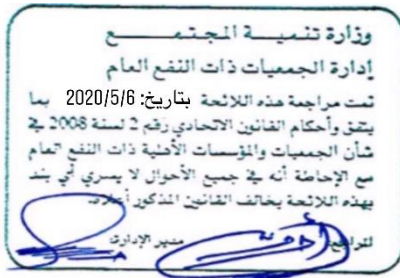 وزارة تنمية المجتمع
إدارة الجمعيات ذات النفع العام
تمت مراجعة هذه اللائحة بتاريخ: 2020/5/6 بما
يتفق وأحكام القانون الاتحادي رقم 2 لسنة 2008 في
شأن الجمعيات والمؤسسات الأهلية ذات النفع العام
مع الإحاطة أنه في جميع الأحوال لا يسري أي بند
بهذه اللائحة يخالف القانون المذكور أعلاه.
المراجع مدير الإدارة